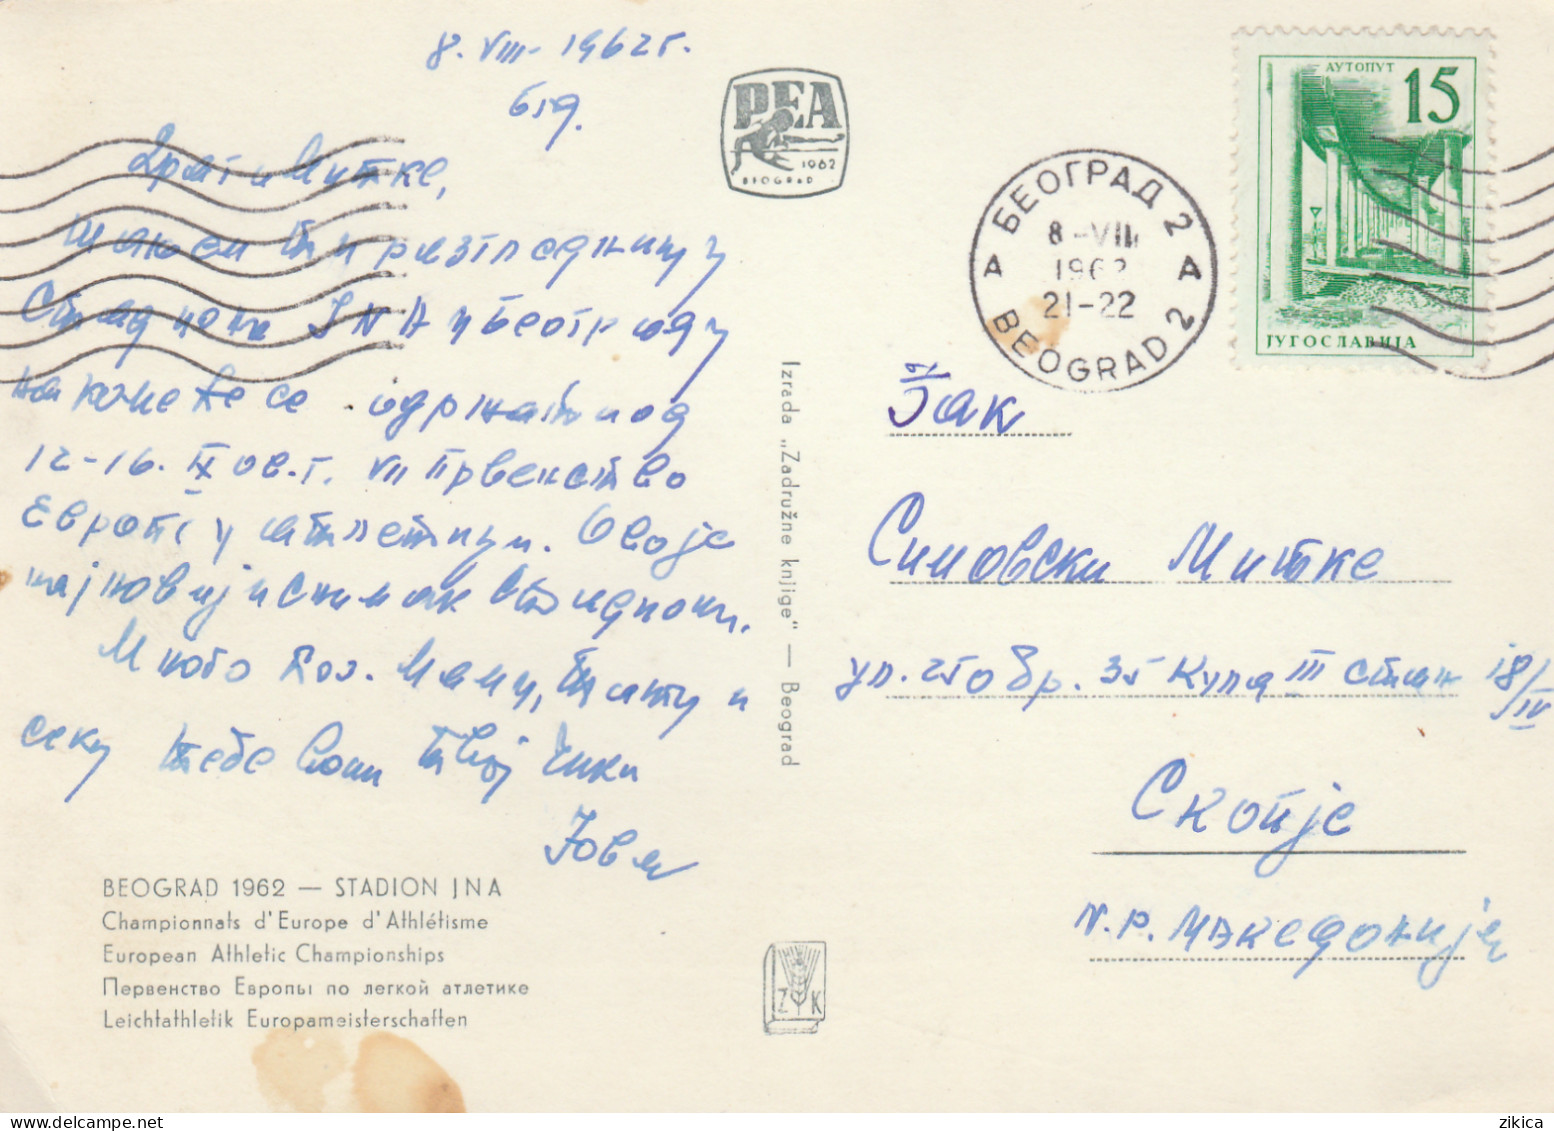 8. VIII - 1962 г.
Бгд.
Драги Митке,
Шаљем ти разгледницу
Стадиона JNA у Београду
на коме ће се одржати од
12-16. IX ов. г. VII Првенство
Европе у атлетици. Ово је
најновији снимак стадиона.
Много поз. Маму, Тату и
секу тебе воли твој чика
Јова
BEOGRAD 1962 — STADION JNA
Championnats d'Europe d'Athlétisme
European Athletic Championships
Первенство Европы по легкой атлетике
Leichtathletik Europameisterschaften
PEA
1962
BEOGRAD
Izrada „Zadružne knjige" — Beograd
Z K
БЕОГРАД 2
A A
8-VIII
1962
21-22
BEOGRAD 2
АУТОПУТ
15
ЈУГОСЛАВИЈА
Ђак
Симовски Митке
ул. 250 бр. 35 Кула III стан 18/IV
Скопје
N.Р. Македонија
zikica